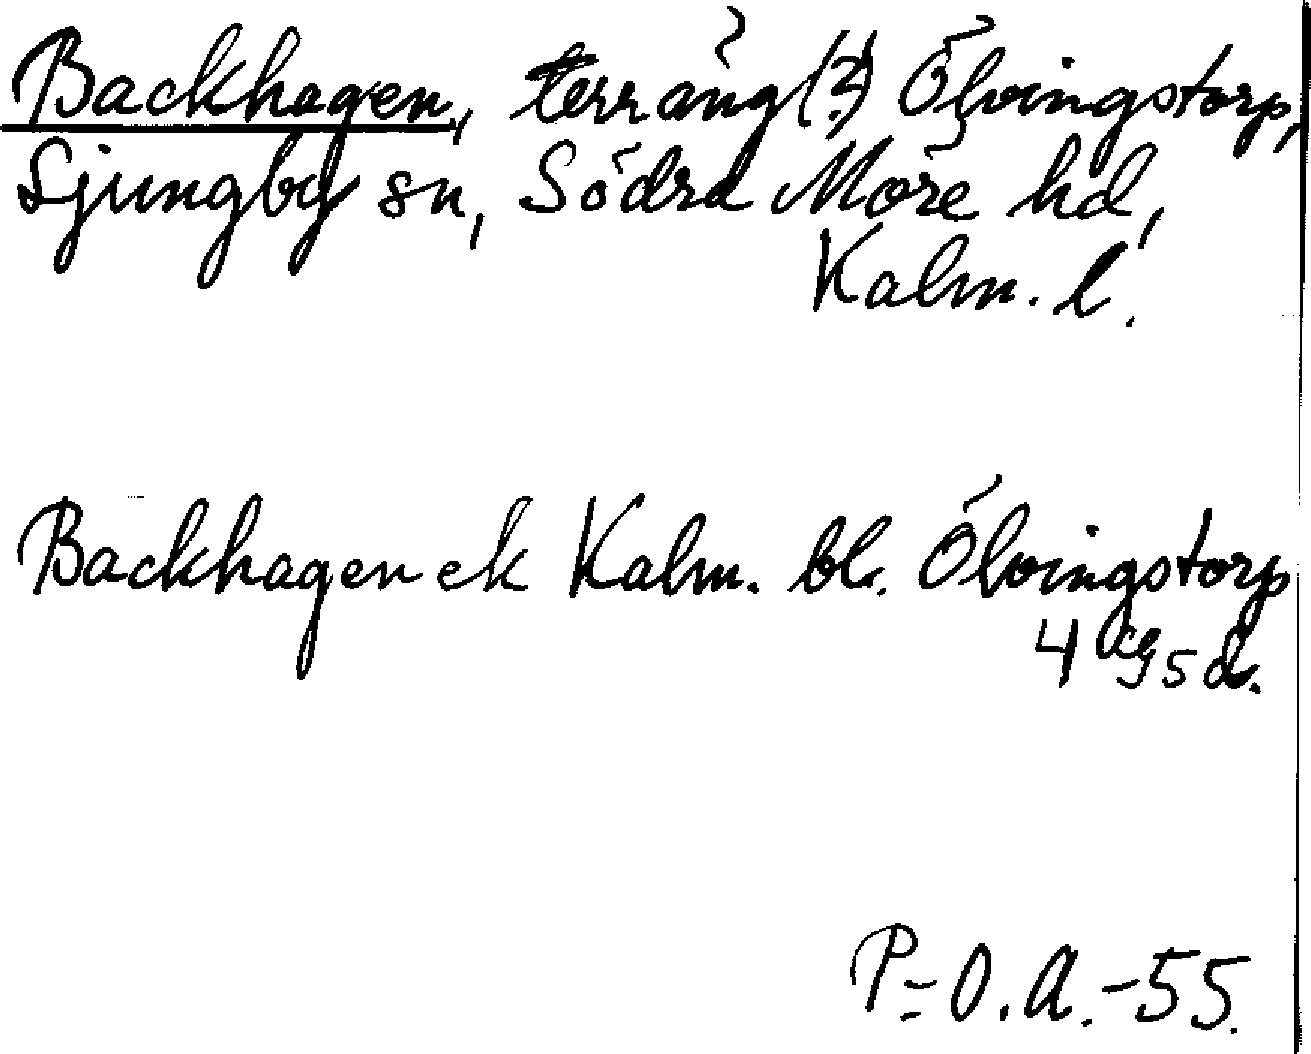 Backhagen, terräng (?) Ölvingstorp,
Ljungby sn, Södra Möre hd,
Kalm. l.
Backhagen ek Kalm. bl. Ölvingstorp
4 G5 d.
P-O.A.-55.